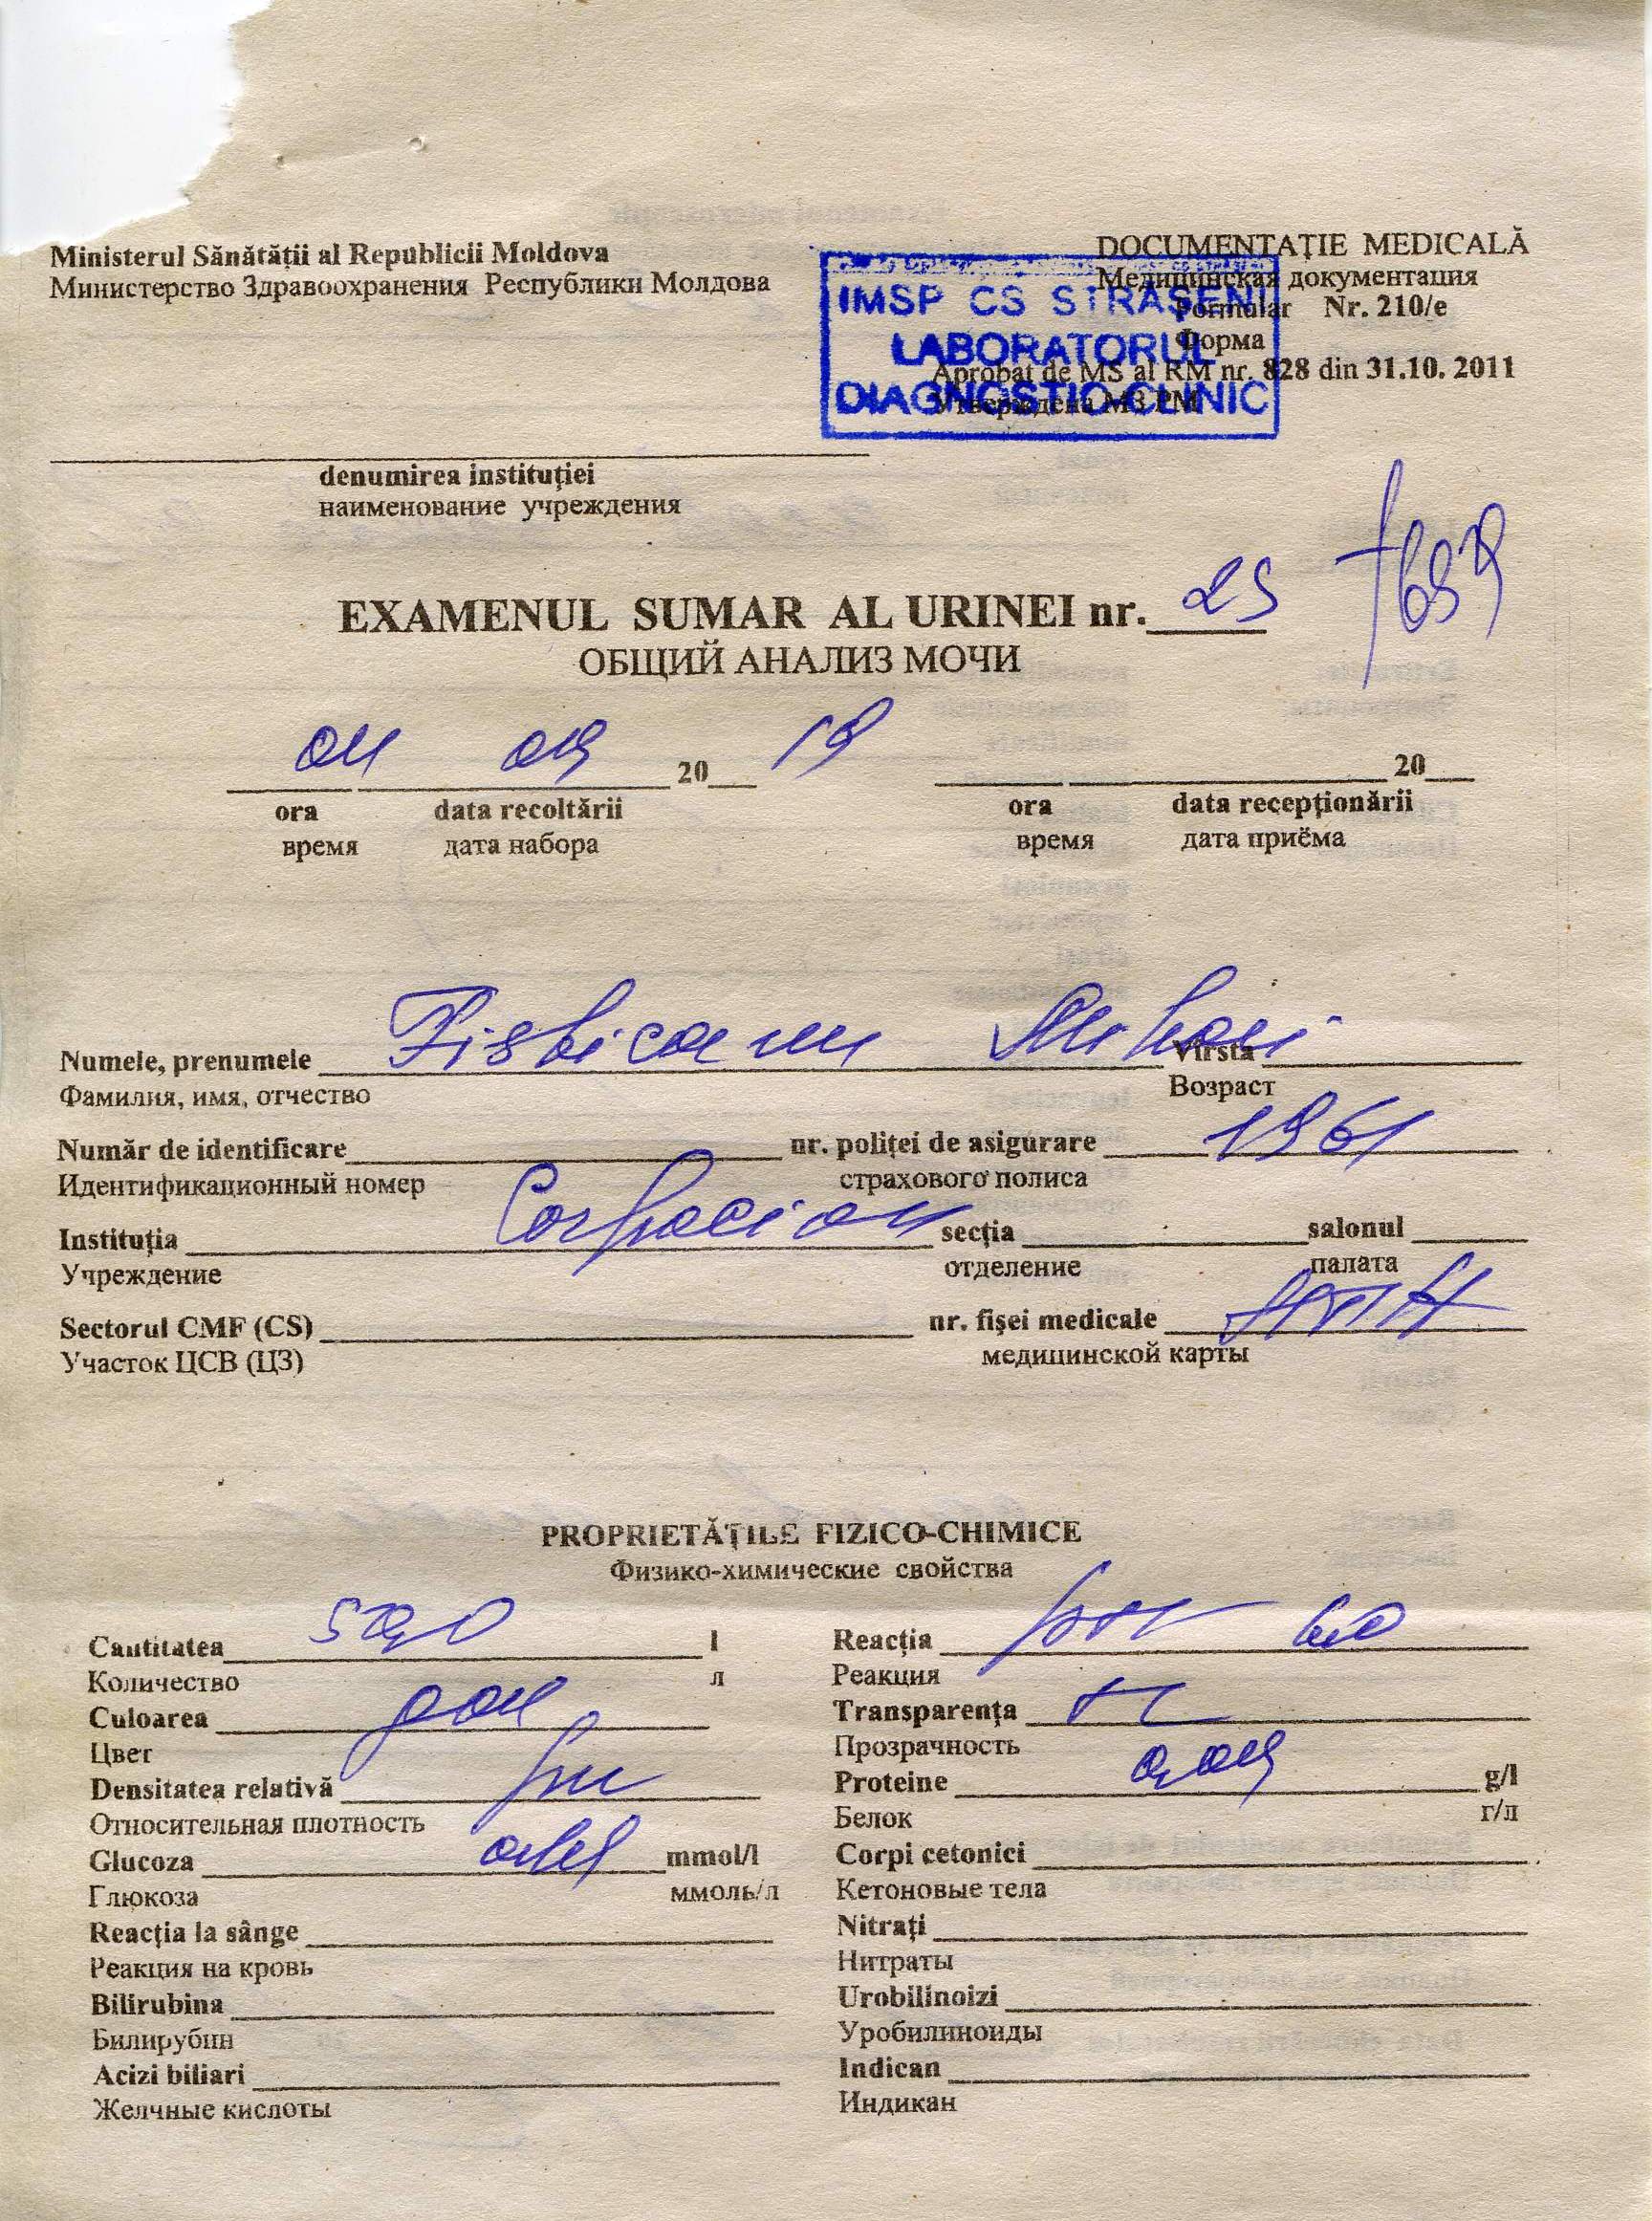 Ministerul Sănătății al Republicii Moldova
Министерство Здравоохранения Республики Молдова
DOCUMENTAŢIE MEDICALĂ
Медицинская документация
Formular Nr. 210/e
Форма
Aprobat de MS al RM nr. 828 din 31.10. 2011
Утверждена МЗ РМ
IMSP CS STRAȘENI
LABORATORUL
DIAGNOSTIC CLINIC
denumirea instituţiei
наименование учреждения
EXAMENUL SUMAR AL URINEI nr. 25
ОБЩИЙ АНАЛИЗ МОЧИ
04 09 20 19
20
ora data recoltării
время дата набора
ora data recepţionării
время дата приёма
Numele, prenumele Mihai Vîrsta
Фамилия, имя, отчество Возраст
Număr de identificare nr. poliţei de asigurare 1961
Идентификационный номер страхового полиса
Instituţia secţia salonul
Учреждение отделение палата
Sectorul CMF (CS) nr. fişei medicale
Участок ЦСВ (ЦЗ) медицинской карты
PROPRIETĂŢILE FIZICO-CHIMICE
Физико-химические свойства
Cantitatea l
Количество л
Culoarea gal
Цвет
Densitatea relativă
Относительная плотность
Glucoza abs mmol/l
Глюкоза ммоль/л
Reacţia la sânge
Реакция на кровь
Bilirubina
Билирубин
Acizi biliari
Желчные кислоты
Reacţia
Реакция
Transparenţa
Прозрачность
Proteine g/l
Белок г/л
Corpi cetonici
Кетоновые тела
Nitraţi
Нитраты
Urobilinoizi
Уробилиноиды
Indican
Индикан